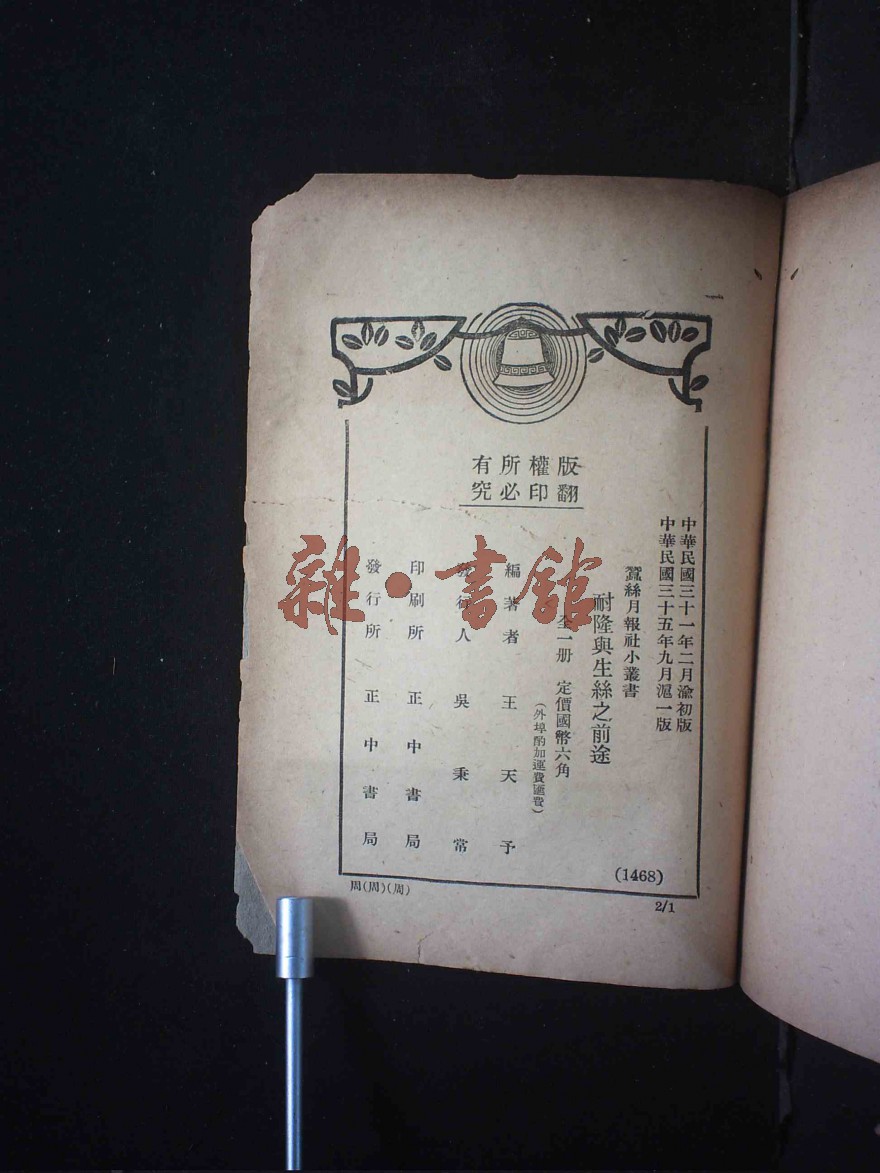 版權所有
翻印必究
中華民國三十一年二月渝初版
中華民國三十五年九月滬一版
蠶絲月報社小叢書
耐隆與生絲之前途
全一册 定價國幣六角
(外埠酌加運費匯費)
編著者 王天予
發行人 吳秉常
印刷所 正中書局
發行所 正中書局
(1468)
周(周)(周)
2/1
雜·書館